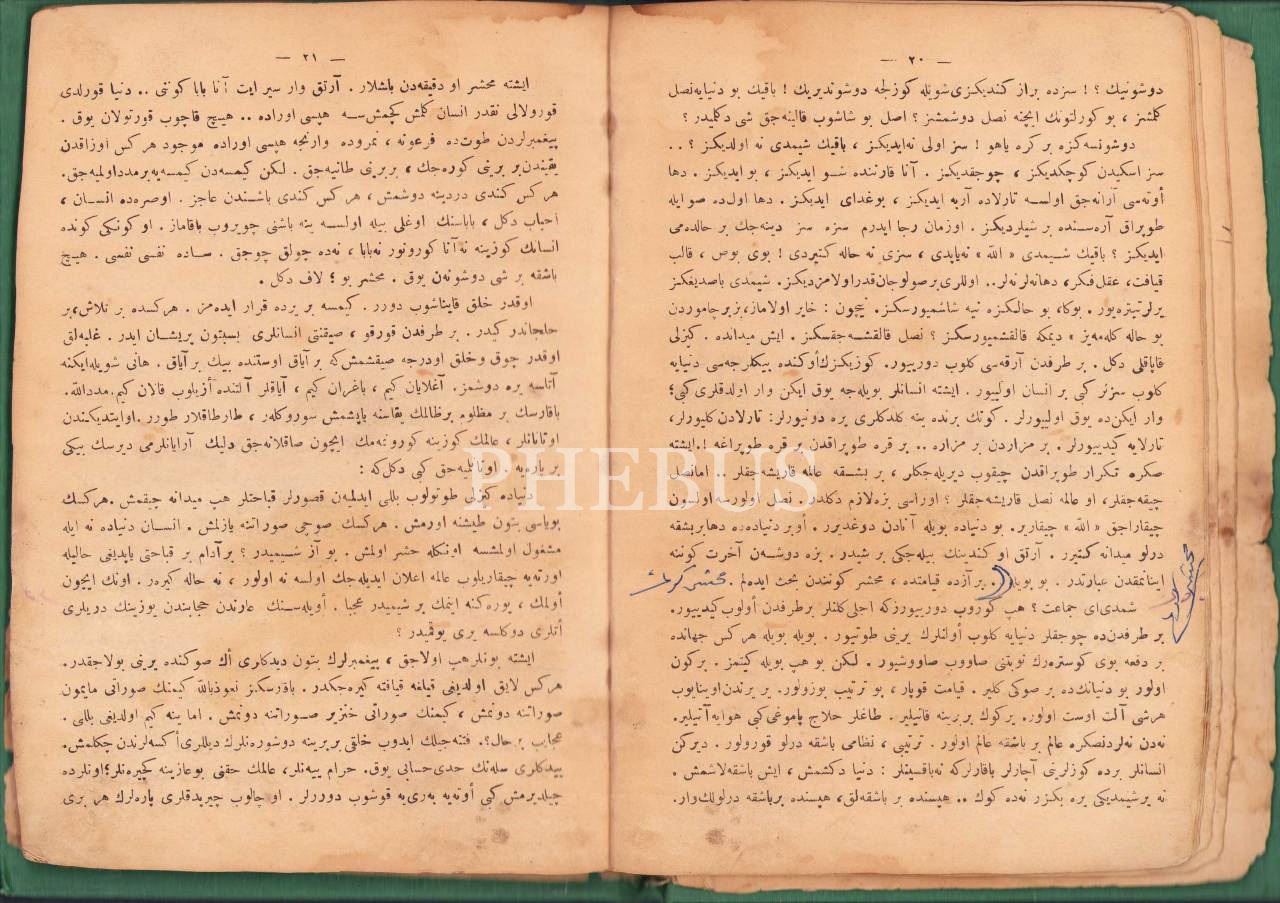 — ٢٠ —
دوشونیك ؟ ! سزده براز كندیكزی شویله كوزلجه دوشوندیریك ! باقیك بو دنیایه نصل
كلمشز ، بو كورلتونك ایچنه نصل دوشمشز ؟ اصل بو شاشوب قالینه‌جق شی دكلمیدر ؟
دوشونسه‌كزه بر كره یاهو ! سز اولی نه‌ایدیكز ، باقیك شیمدی نه اولدیكز ؟ ..
سز اسكیدن كوچكدیكز ، چوجقدیكز . آنا قارننده شو ایدیكز ، بو ایدیكز . دها
أوته‌سی آرانه‌جق اولسه تارلاده آرپه ایدیكز ، بوغدای ایدیكز . دها اول‌ده صو ایله
طوپراق آره‌سنده بر شیلردیكز . اوزمان رجا ایدرم سزه سز دینه‌جك بر حالده‌می
ایدیكز ؟ باقیك شیمدی « الله » نه‌یاپدی ، سزی نه حاله كتیردی ! بوی بوص ، قالب
قیافت ، عقل فكر ، دها نه‌لر نه‌لر .. اوللری بر صولوجان قدر اولامزدیكز . شیمدی باصدیغكز
یرلر تیتره‌یور . بوكا ، بو حالكزه نیه شاشمیورسكز . نیچون : خایر اولاماز ، بز بر چاموردن
بو حاله كله‌مه‌یز » دیمكه قالقشمیورسكز ؟ نصل قالقشه‌جقسكز . ایش میدانده . كیزلی
قاپاقلی دكل . بر طرفدن آرقه‌سی كلوب دوریبور . كوزیكزك أوكنده بیكلرجه‌سی دنیایه
كلوب سزلر كبی بر انسان اولیبور . ایشته انسانلر بویله‌جه یوق ایكن وار اولدقلری كبی ؛
وار ایكن‌ده یوق اولیبورلر . كونك برنده ینه كلدكلری یره دونیورلر : تارلادن كلیورلر ،
تارلایه كیدیبورلر . بر مزاردن بر مزاره .. بر قره طوپراقدن بر قره طوپراغه ! . ایشته
صكره تكرار طوپراقدن چیقوب دیریله‌جكلر ، بر بشقه عالمه قاریشه‌جقلر .. اما نصل
چیقه‌جقلر ، او عالمه نصل قاریشه‌جقلر ؟ اوراسی بزه لازم دكلدر . نصل اولورسه اولسون
چیقاراجق « الله » چیقاریر . بو دنیاده بویله آنادن دوغدیرر . أوبر دنیاده‌ده دها بر بشقه
درلو میدانه كتیرر . آرتق او كندینك بیله‌جكی بر شیدر . بزه دوشه‌ن آخرت كوننه
اینانمقدن عبارتدر . بو بویله . بر آزده قیامتده ، محشر كونندن بحث ایده‌لم .
شمدی‌ای جماعت ؟ هپ كوروب دوریبورزكه اجلی كلنلر بر طرفدن أولوب كیدیبور .
بر طرفدن‌ده چوجقلر دنیایه كلوب أولنلرك یرینی طوتیور . بویله بویله هركس جهانده
بر دفعه بوی كوستره‌رك نوبتنی صاووب صاووشیور . لكن بو هپ بویله كیتمز . بركون
اولور بو دنیانك‌ده بر صوكی كلیر . قیامت قوپار ، بو ترتیب بوزولور . بر یرندن اوینایوب
هرشی آلت اوست اولور . یر كوك بربرینه قاتیلیر . طاغلر حلاج پاموغی كبی هوایه آتیلیر .
نه‌دن نه‌لردنصكره عالم بر باشقه عالم اولور . ترتیبی ، نظامی باشقه درلو قورولور . دیركن
انسانلر برده كوزلرینی آچارلر باقارلركه نه‌باقسینلر : دنیا دكشمش ، ایش باشقه‌لاشمش .
نه یر شیمدیكی یره بكزر نه‌ده كوك .. هپسنده بر باشقه‌لق ، هپسنده بر باشقه درلولك وار .
— ٢١ —
ایشته محشر او دقیقه‌دن باشلار . آرتق وار سیر ایت آنا بابا كوننی .. دنیا قورلدی
قورولالی نقدر انسان كلمش كچمش‌سه هپسی اوراده .. هیچ قاچوب قورتولان یوق .
پیغمبرلردن طوت‌ده فرعونه ، نمروده وارنجه هپسی اوراده موجود هركس اوزاقدن
یقیندن بر برینی كوره‌جك ، بربرینی طانیه‌جق . لكن كیمسه‌دن كیمسه‌یه بر مدد اولمیه‌جق .
هركس كندی دردینه دوشمش ، هركس كندی باشندن عاجز . اوصره‌ده انسان ،
احباب دكل ، باباسنك اوغلی بیله اولسه ینه باشنی چویروب باقاماز . او كونكی كونده
انسانك كوزینه نه‌آنا كورونور نه‌بابا ، نه‌ده چولق چوجق . ساده نفسی نفسی . هیچ
باشقه بر شی دوشونه‌ن یوق . محشر بو ؛ لاف دكل .
اوقدر خلق قایناشوب دورر . كیمسه بر یرده قرار ایده‌مز . هركسده بر تلاش ، بر
خلجاندر كیدر . بر طرفدن قورقو ، صیقنتی انسانلری بسبتون پریشان ایدر . غلبه‌لق
اوقدر چوق وخلق اودرجه صیقشمش‌كه بر آیاق اوستنده بیك بر آیاق . هانی شویله ایكنه
آتلسه یره دوشمز . آغلایان كیم ، باغران كیم ، آیاقلر آلتنده أزیلوب قالان كیم . مدد الله .
باقارسك بر مظلوم بر ظالمك یقاسنه یاپشمش سوروكلەر ، طارطاقلار طورر . اوایتدیكندن
اوتانانلر ، عالمك كوزینه كورونمه‌مك ایچون صاقلانه‌جق دلیك آرایانلرمی دیرسك بیكی
بر پاره‌یه . اوتانلمیه‌جق كبی دكل‌كه :
دنیاده كیزلی طوتولوب بللی ایدلمەین قصورلر قباحتلر هپ میدانه چیقمش . هركسك
بویاسی بتون طیشنه اورمش . هركسك صوچی صوراتنه یازلمش . انسان دنیاده نه ایله
مشغول اولمشسه اونكله حشر اولمش . بو آز شیمیدر ؟ بر آدام بر قباحتی یاپدیغی حالیله
اورته‌یه چیقاریلوب عالمه اعلان ایدیله‌جك اولسه نه اولور ، نه حاله كیره‌ر . اونك ایچون
أولمك ، یوره‌كنه اینمك بر شیمیدر عجبا . اویله‌سنك عارندن حجابندن یوزینك دریلری
أتلری دوكلسه یری یوقمیدر ؟
ایشته بونلر هپ اولاجق ، پیغمبرلرك بتون دیدكلری أك صوكنده یرینی بولاجقدر .
هركس لایق اولدیغی قیلغه قیافته كیره‌جكدر . باقارسكز نعوذبالله كیمنك صوراتی مایمون
صوراتنه دونمش ، كیمنك صوراتی خنزیر صوراتنه دونمش . اما ینه كیم اولدیغی بللی .
عجایب بر حال ؟ . فتنه‌جیلك ایدوب خلقی بربرینه دوشوره‌نلرك دیللری أكسه‌لرندن چكلمش .
ییدكلری سله‌نك حدی حسابی یوق . حرام ییه‌نلر ، عالمك حقنی بوغازینه كچیره‌نلر ؛ اونلرده
چیلدیرمش كبی أوته‌یه بەری‌یه قوشوب دوررلر . او چالوب چیرپدقلری پاره‌لرك هر بری
PHEBUS